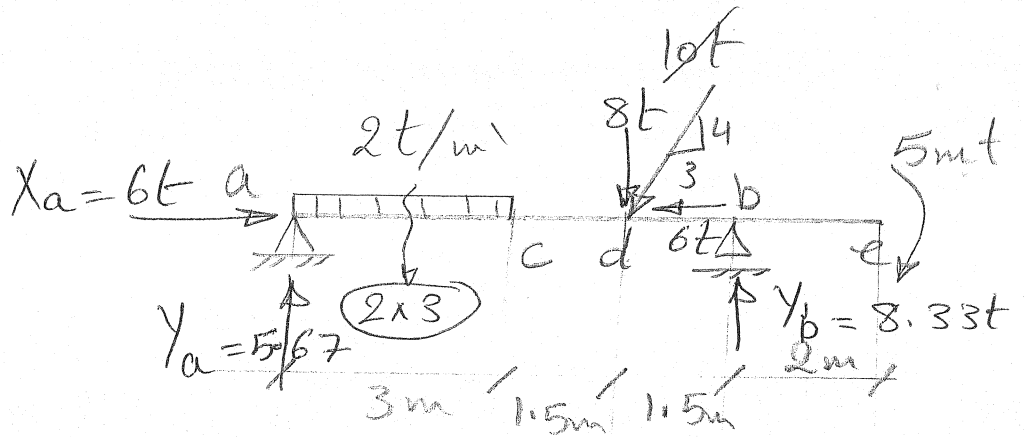 10t
8t
4
2t/m'
3
5mt
Xa = 6t
a
b
c
d
6t
e
2x3
Ya = 5.67
Yb = 8.33t
3m
1.5m
1.5m
2m